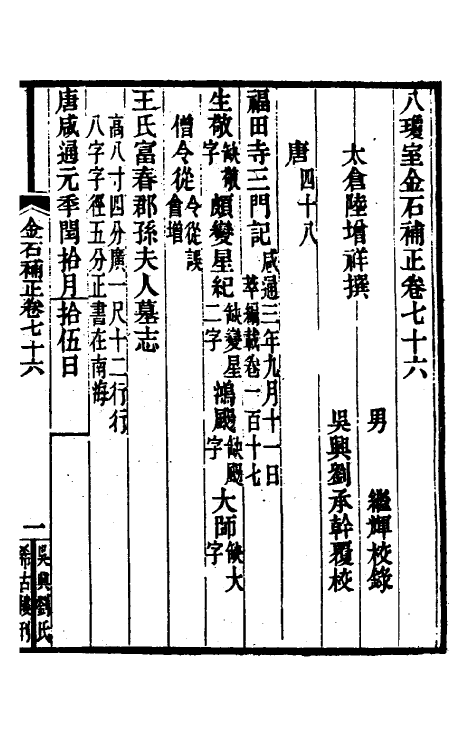 八瓊室金石補正卷七十六
太倉陸增祥撰
男　繼煇校錄
吳興劉承幹覆校
唐四十八
福田寺三門記咸通三年九月十一日萃編載卷一百十七
生敬缺敬字頗變星紀缺變星二字鴻颺缺颺字大師缺大字
僧令從令從誤會增
王氏富春郡孫夫人墓志
高八寸四分廣一尺十二行行
八字字徑五分正書在南海
唐咸通元年閏拾月拾伍日
金石補正卷七十六
一
吳興劉氏
希古樓刊